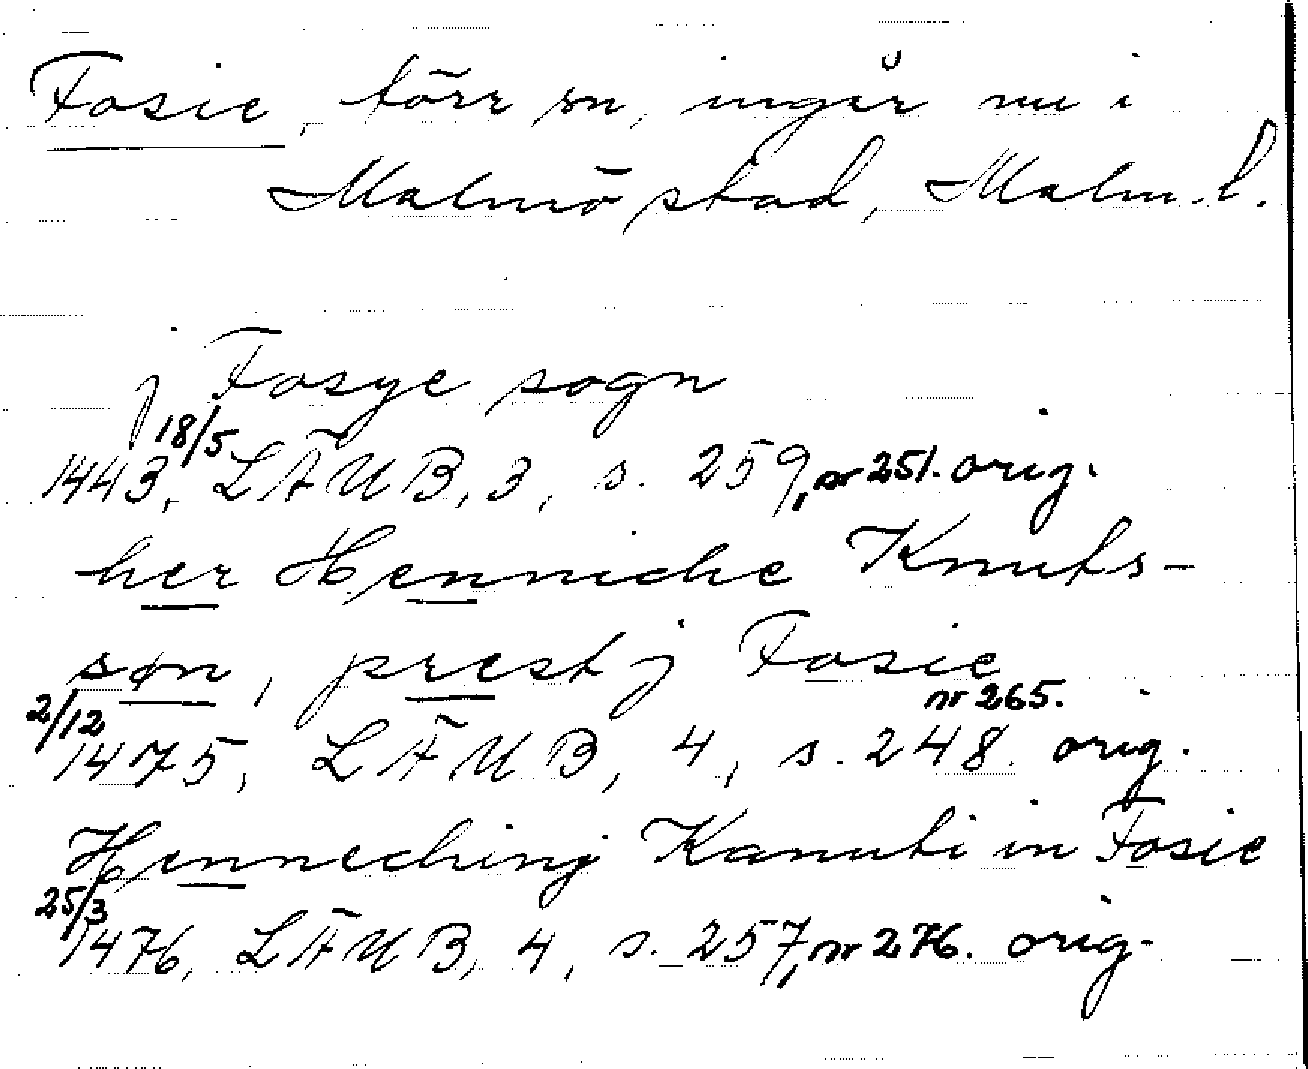 Fosie, förr sn, ingår nu i
Malmö stad, Malm. l.
j Fosye sogn
18/5 1443, LÄUB, 3, s. 259, nr 251. orig.
her Henniche Knuts-
søn, prest j Fosie
2/12 1475, LÄUB, 4, s. 248. nr 265. orig.
Henneching Kanuti in Fosie
25/3 1476, LÄUB, 4, s. 257, nr 276. orig.